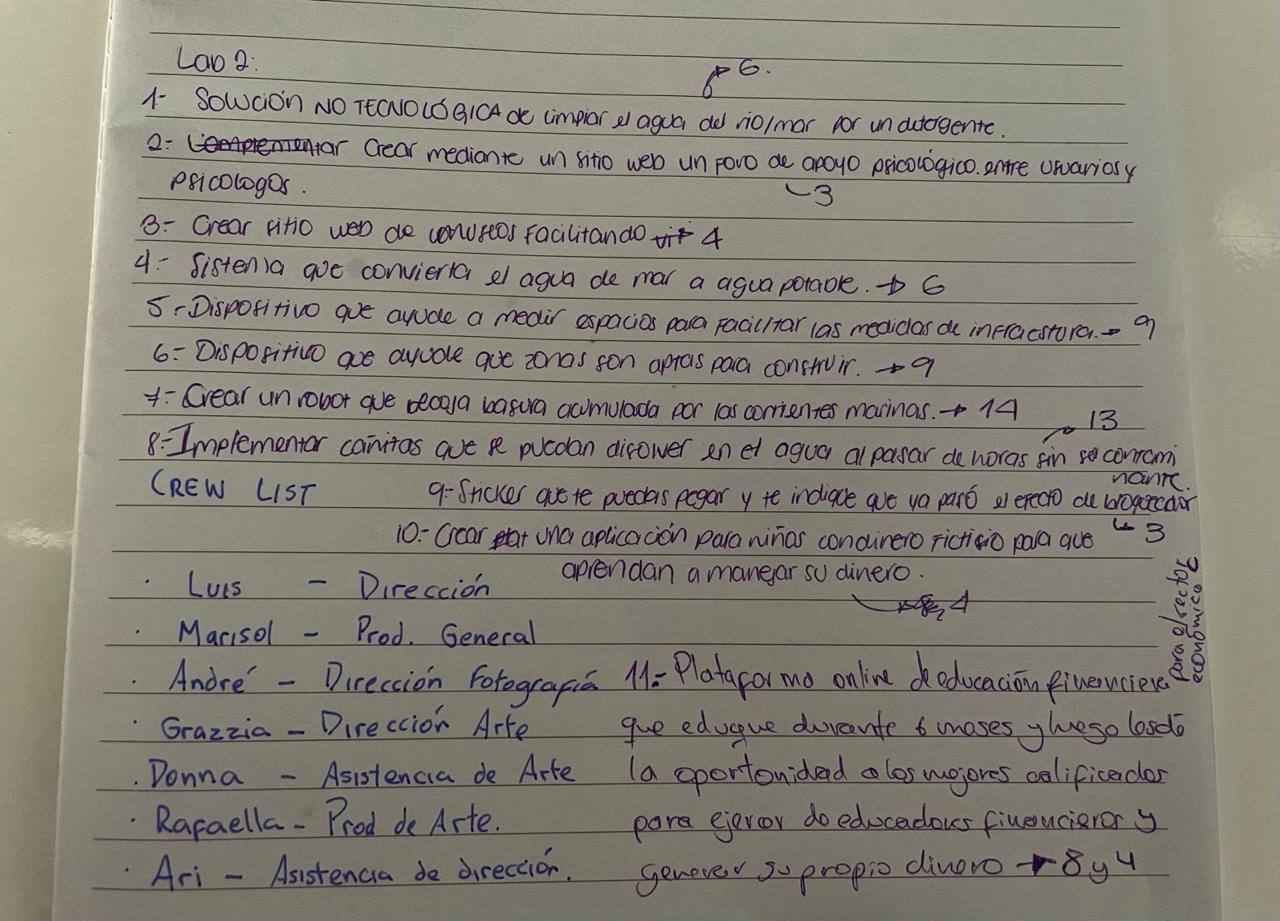 Lab 2:
6.
1- Solución NO TECNOLÓGICA de limpiar el agua del rio/mar por un detergente.
2- Complementar Crear mediante un sitio web un foro de apoyo psicológico. entre usuarios y
psicologos.
3
3- Crear sitio web de facilitando 4
4- Sistema que convierta el agua de mar a agua potable. → 6
5- Dispositivo que ayude a medir espacios para facilitar las medidas de infraestura. → 9
6- Dispositivo que ayude que zonas son aptas para construir. → 9
7- Crear un robot que recoja basura acumulada por las corrientes marinas. → 14
13
8- Implementar cañitas que se puedan disolver en el agua al pasar de horas sin ser contami
nante.
CREW LIST
9- Sticker que te puedas pegar y te indique que ya pasó el efecto de bloqueador
3
10- Crear una aplicación para niñas con dinero ficticio para que
aprendan a manejar su dinero.
4
· Luis - Dirección
· Marisol - Prod. General
· André - Dirección Fotografía
· Grazzia - Dirección Arte
· Donna - Asistencia de Arte
· Rafaella - Prod de Arte.
· Ari - Asistencia de dirección.
para el sector
económico
11.- Plataforma online de educación financiera
que eduque durante 6 meses y luego les dé
la oportunidad a los mejores calificados
para ejercer de educadores financieros y
generar su propio dinero → 8 y 4